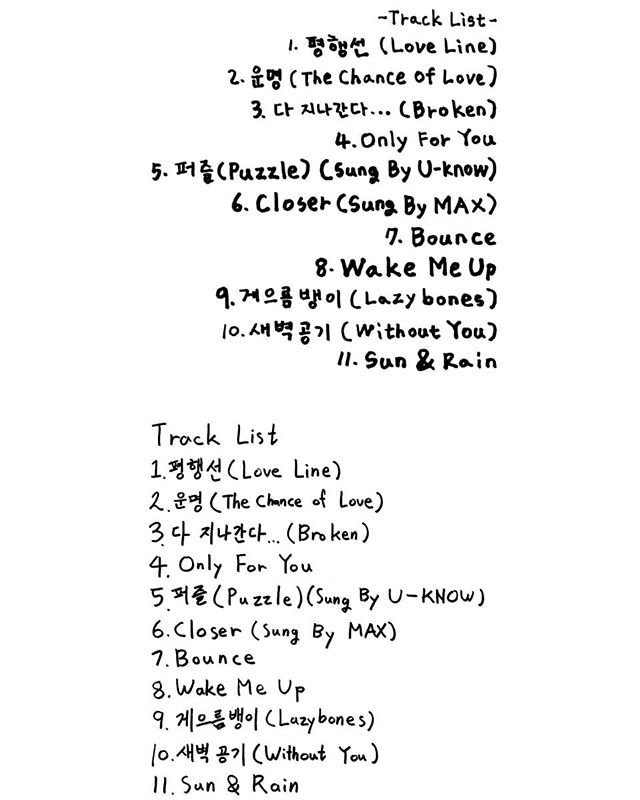 -Track List-
1. 평행선 (Love Line)
2. 운명 (The Chance of Love)
3. 다 지나간다... (Broken)
4. Only For You
5. 퍼즐 (Puzzle) (Sung By U-know)
6. Closer (Sung By MAX)
7. Bounce
8. Wake Me Up
9. 게으름뱅이 (Lazybones)
10. 새벽공기 (Without You)
11. Sun & Rain
Track List
1. 평행선 (Love Line)
2. 운명 (The Chance of Love)
3. 다 지나간다... (Broken)
4. Only For You
5. 퍼즐 (Puzzle) (Sung By U-KNOW)
6. Closer (Sung By MAX)
7. Bounce
8. Wake Me Up
9. 게으름뱅이 (Lazybones)
10. 새벽 공기 (Without You)
11. Sun & Rain